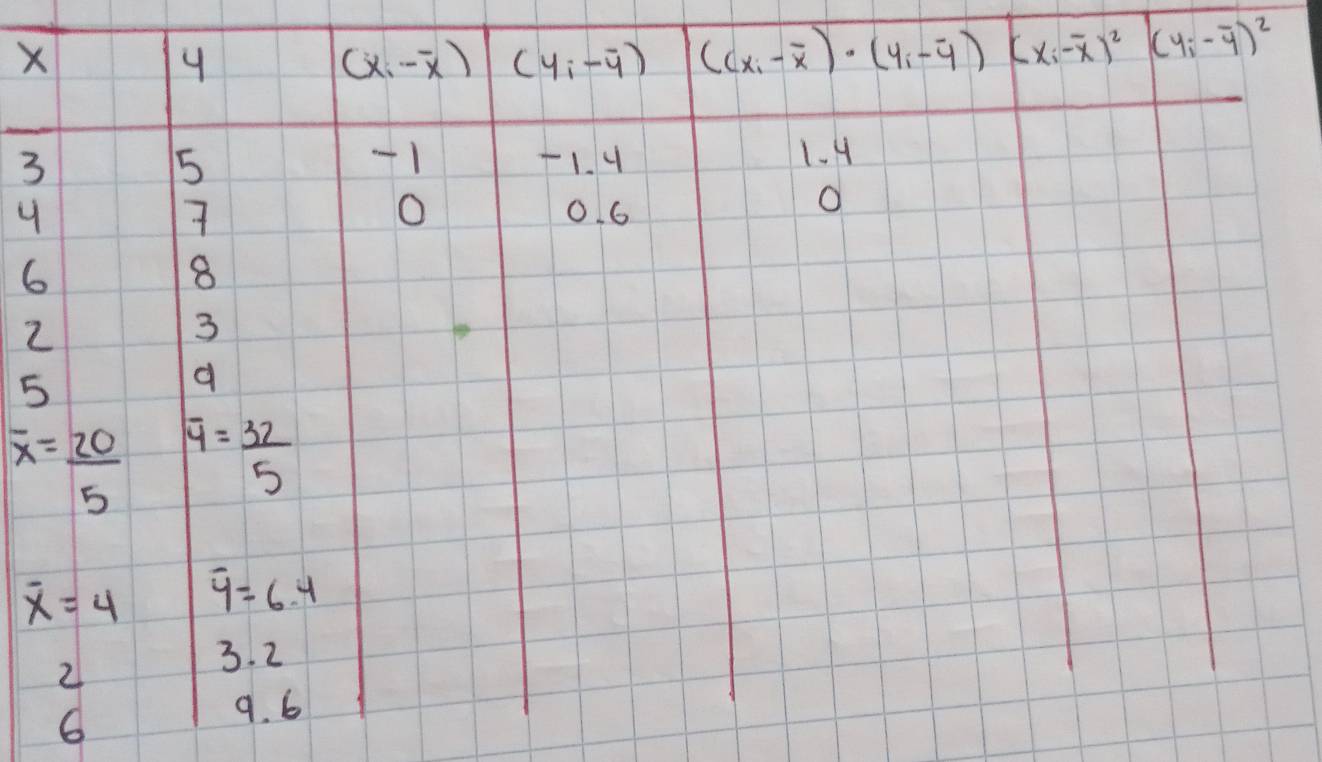 x y (xi-x̄) (yi-ȳ) ((xi-x̄)·(yi-ȳ) (xi-x̄)² (yi-ȳ)²
3 5 -1 -1.4 1.4
4 7 0 0.6 0
6 8
2 3
5 9
x̄=20/5 ȳ=32/5
x̄=4 ȳ=6.4
2 3.2
6 9.6